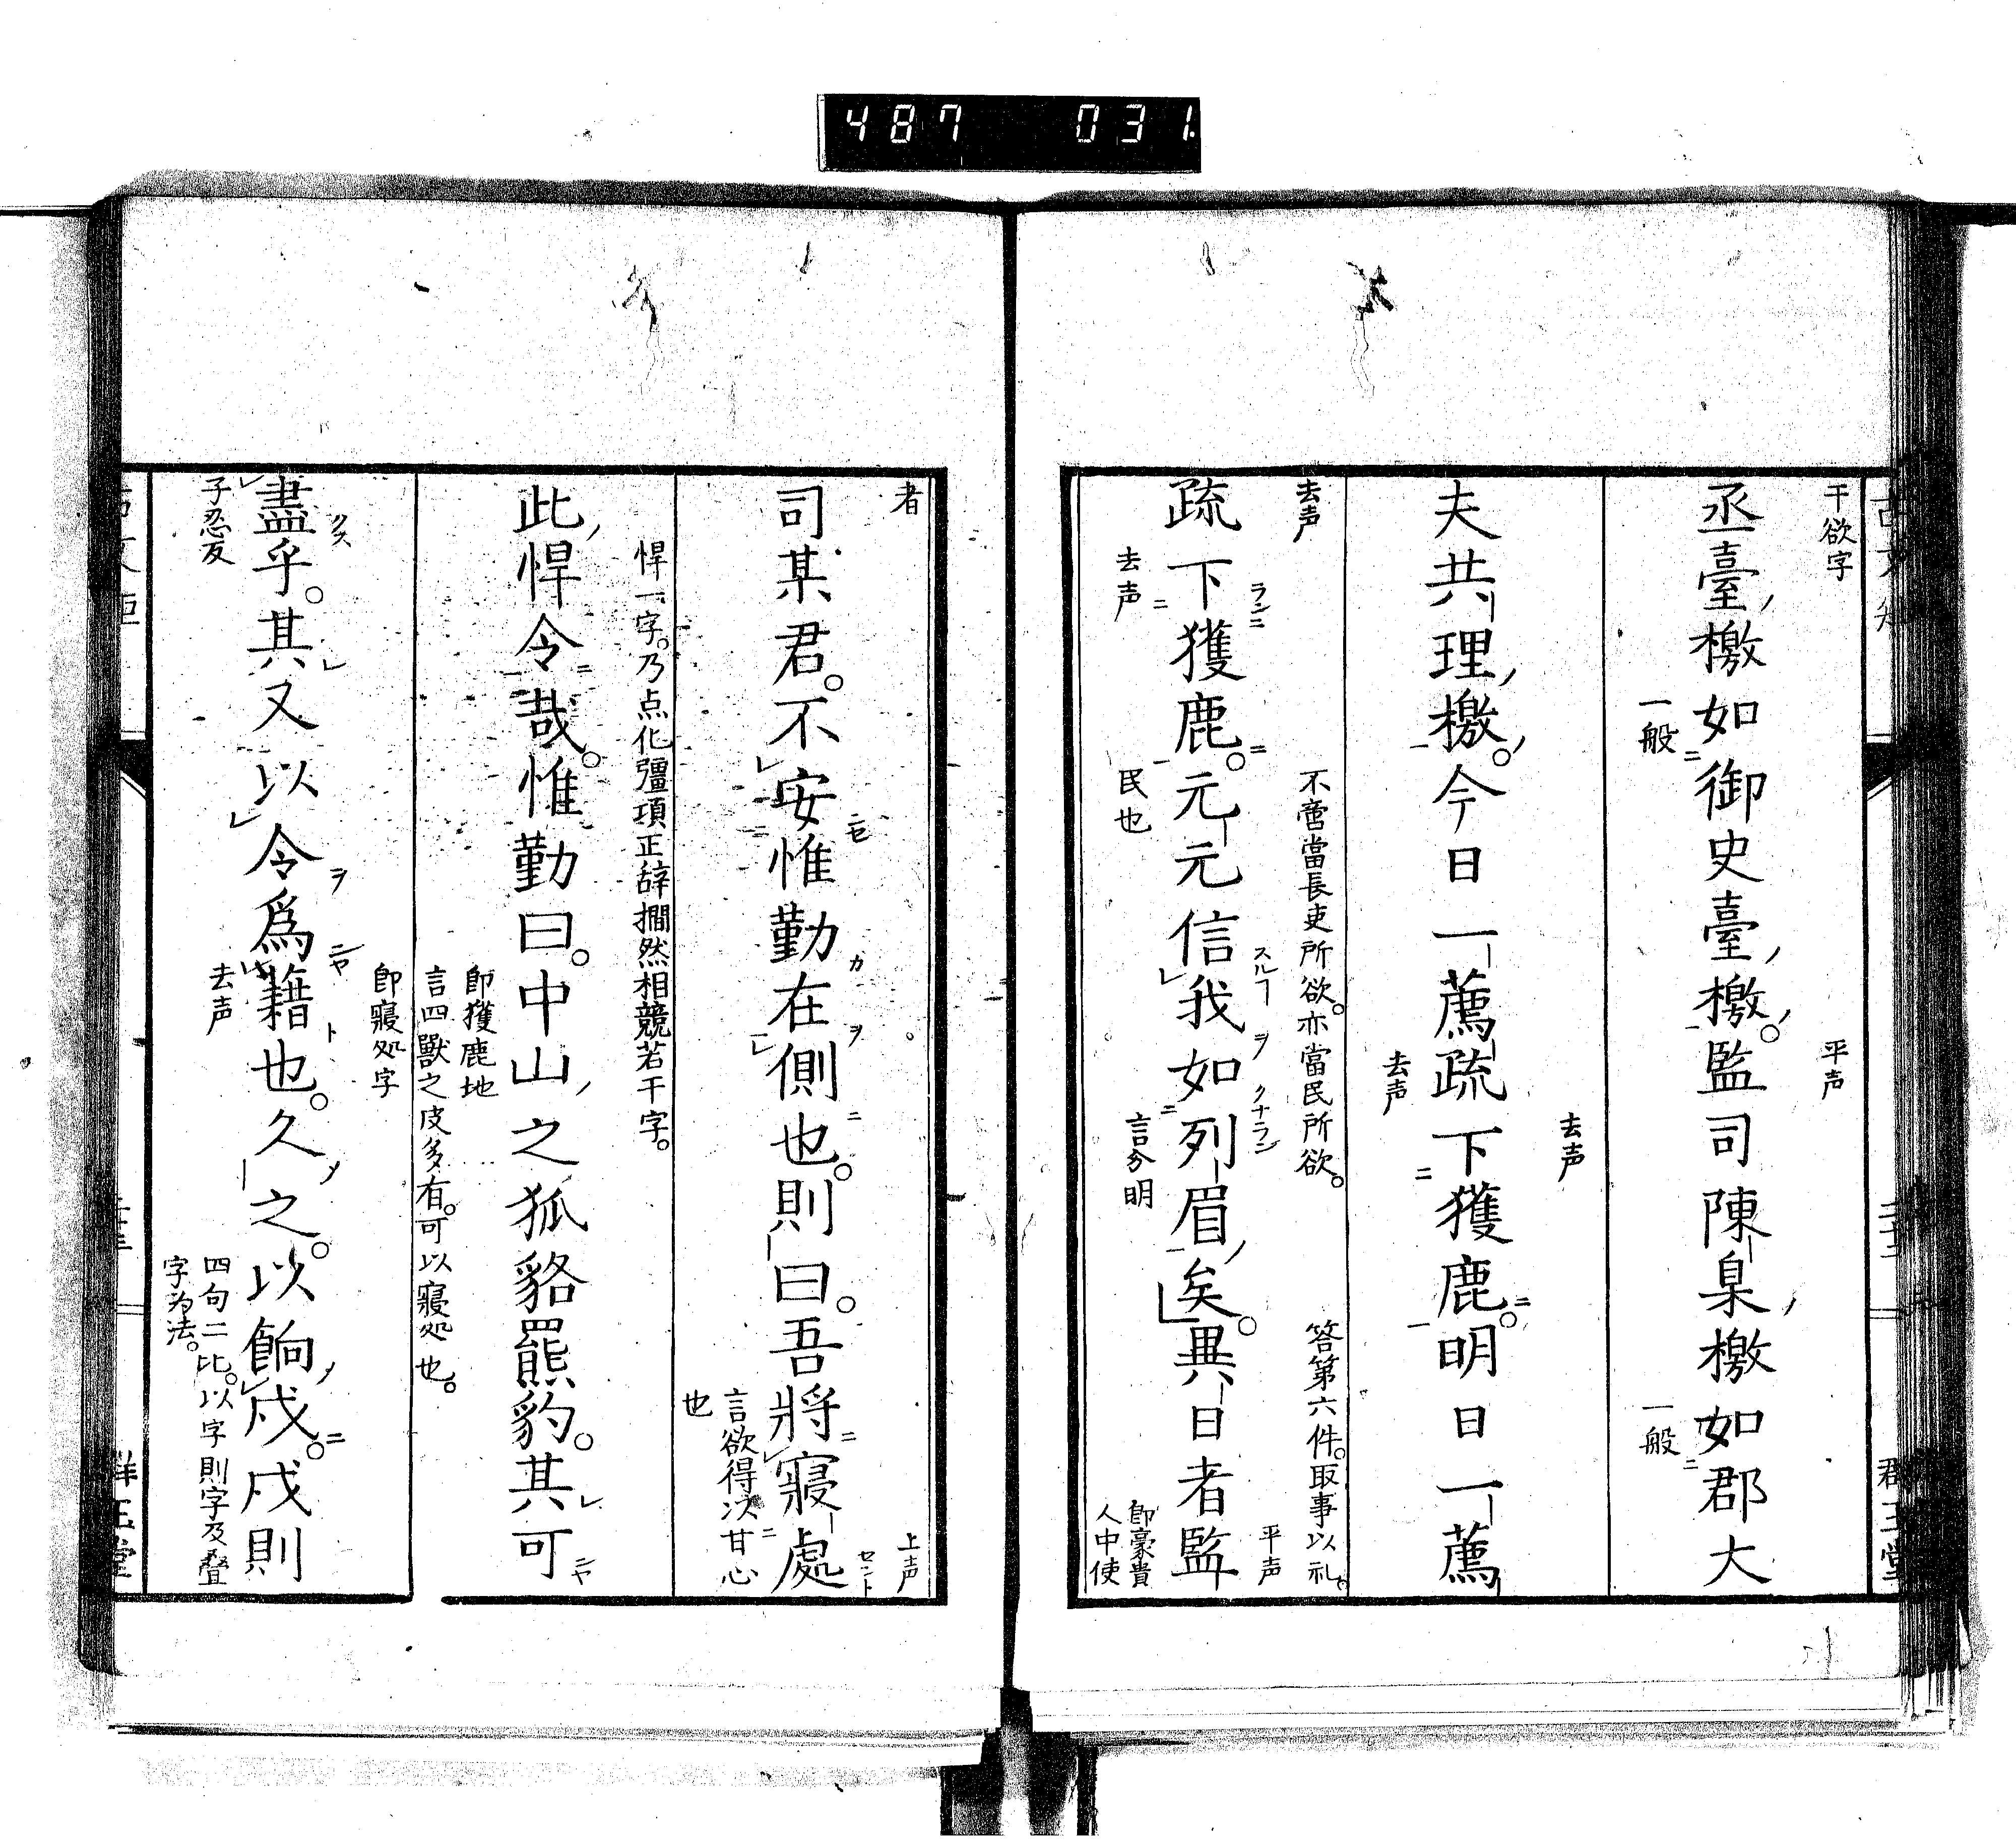 487 031
干欲字 平声
丞臺檄如御史臺檄。監司陳臬檄如郡大
一般 一般
去声
夫共理檄。今日一薦疏下獲鹿。明日一薦
去声
去声 不啻當長吏所欲。亦當民所欲。 答第六件。取事以礼。
疏下獲鹿。元元信我如列眉矣。異日者監
ランニ スルヿ ヲ クナラン 平声
去声 民也 言分明 即豪貴
人中使
者 上声
司某君。不安惟勤在側也。則曰。吾將寢處
セ カ ヲ ニ セント
言欲得次甘心
也
悍一字。乃点化彊項正辞撊然相競若干字。
此悍令哉。惟勤曰。中山之狐貉羆豹。其可
即獲鹿地
言四獸之皮多有。可以寢処也。
即寢処字
盡乎。其又以令為藉也。久之。以餉戍。戍則
子忍反 去声 四句二比。以字則字及疊
字为法。
群玉堂